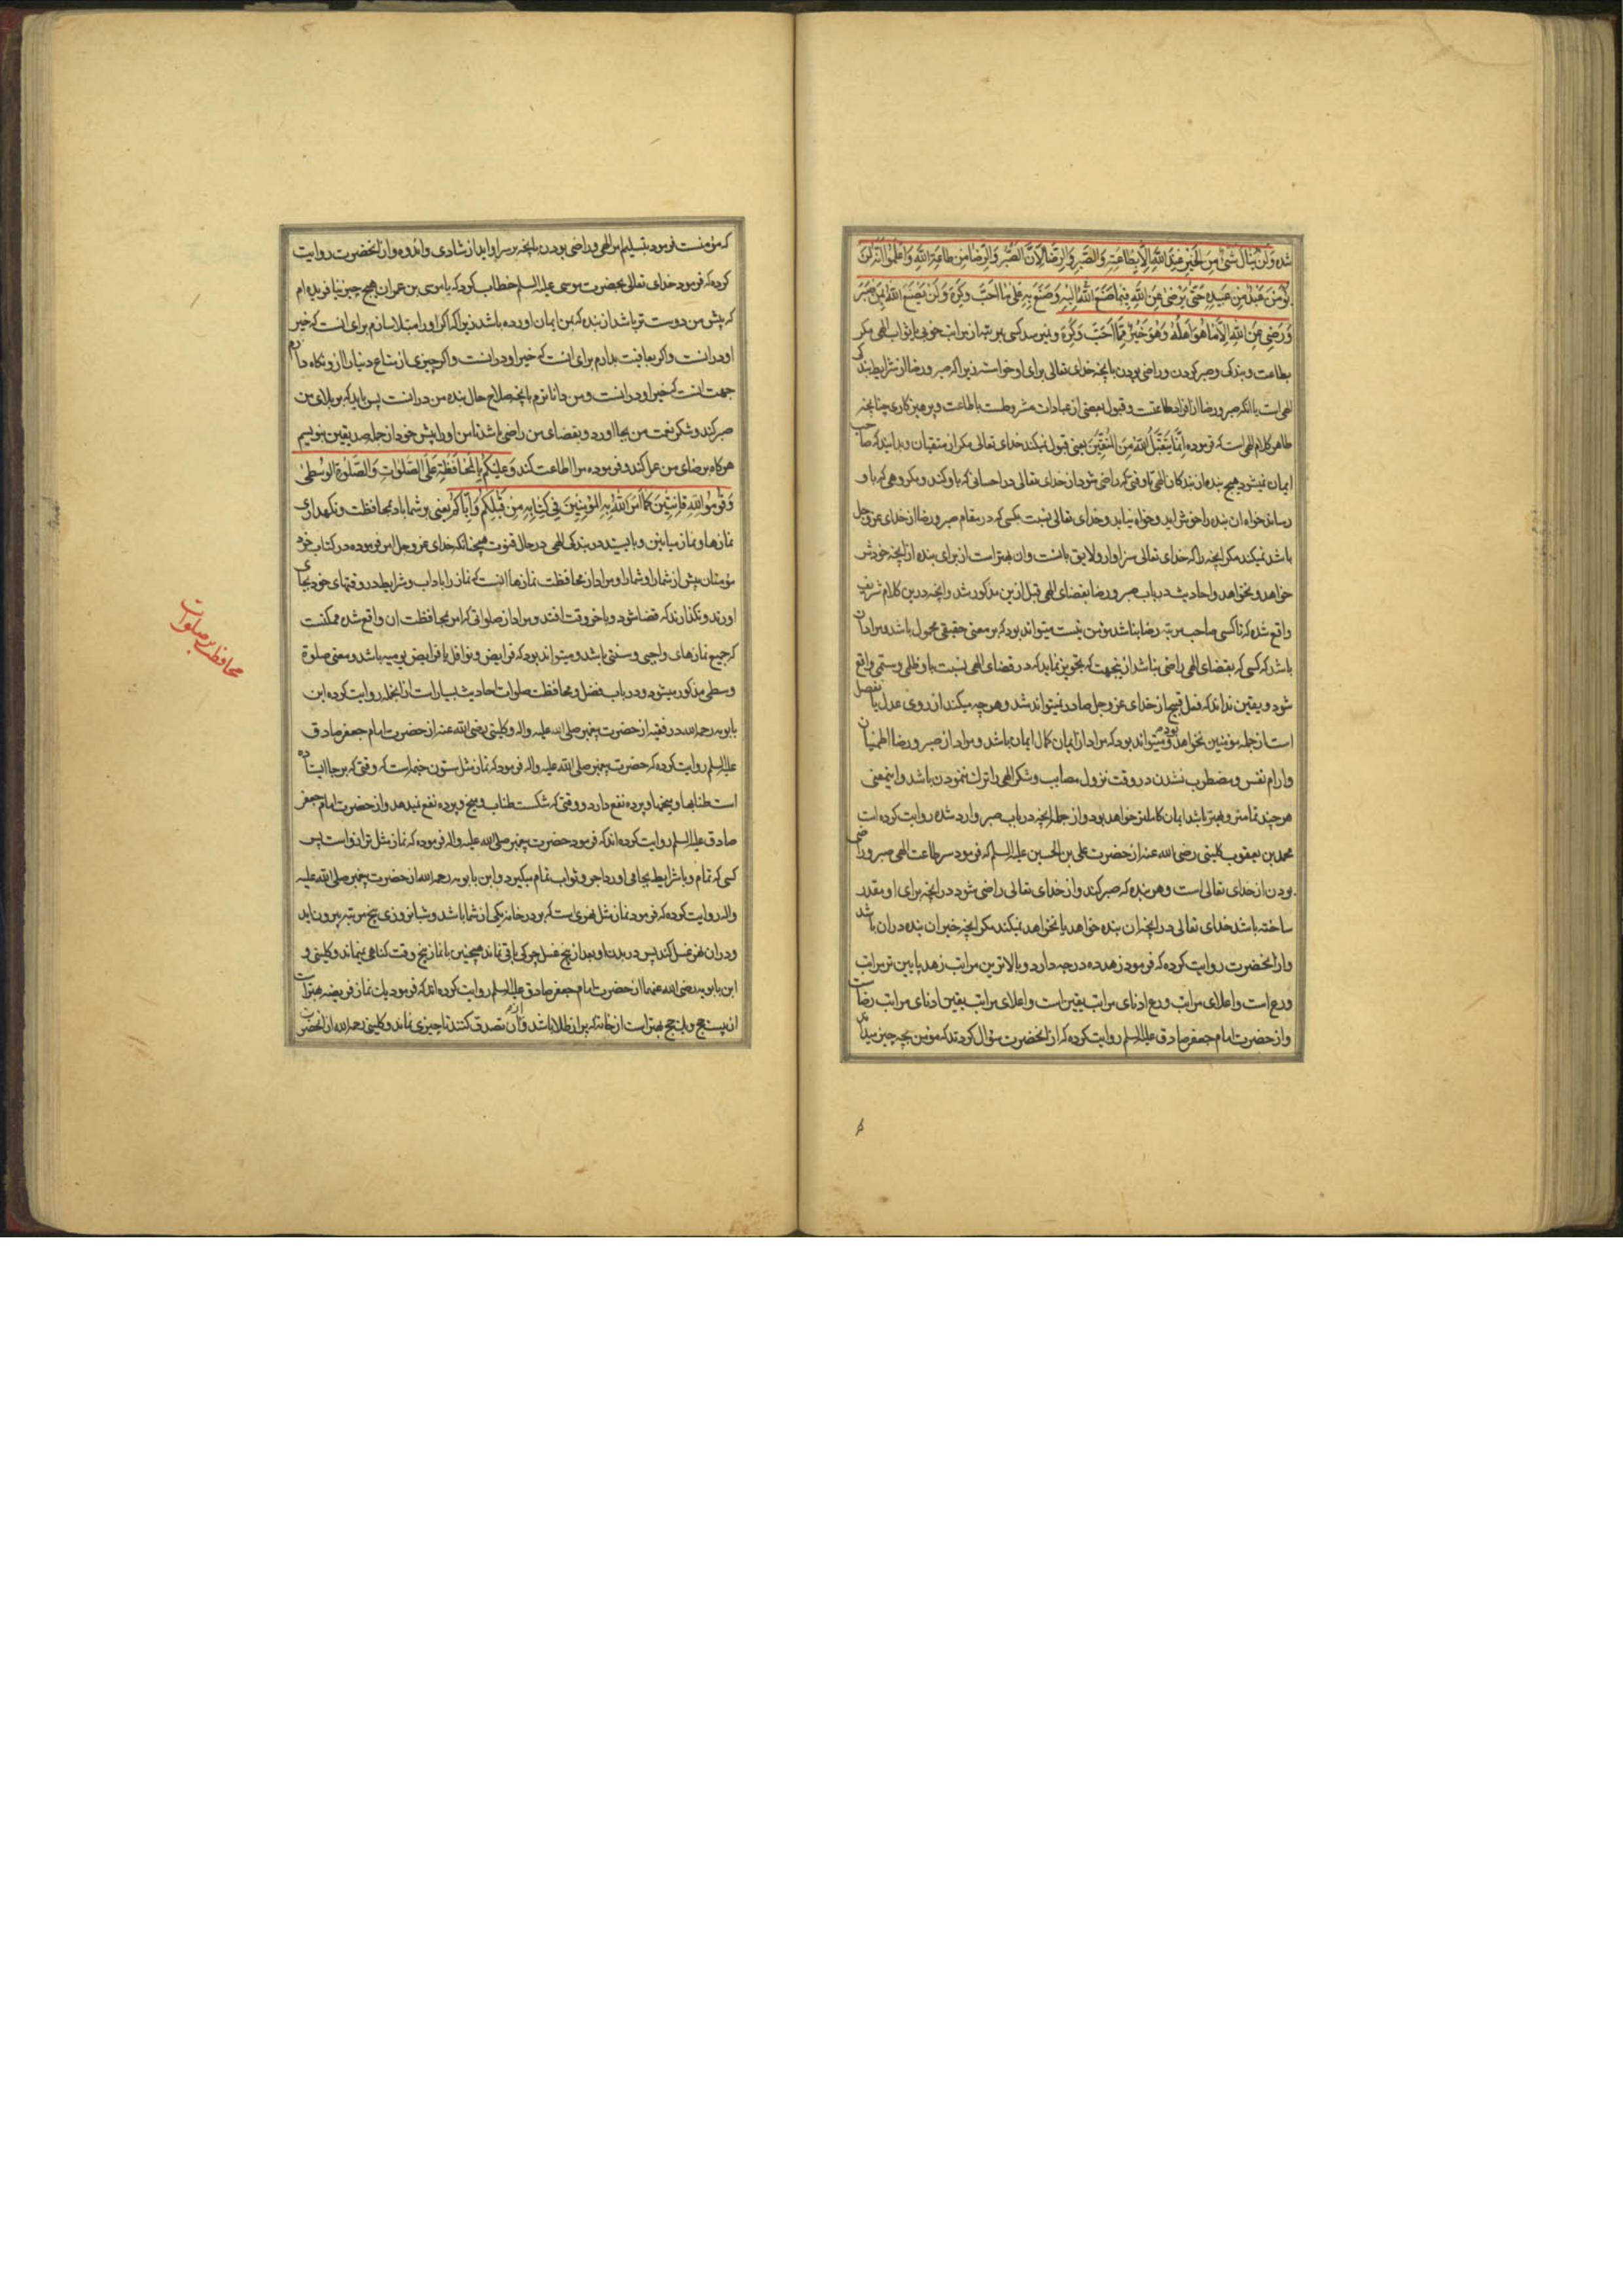 شده وَلَنْ يُنَالَ شَيْءٌ مِنَ الْخَيْرِ عِنْدَ اللهِ اِلَّا بِطَاعَتِهِ وَالصَّبْرِ وَالرِّضَا لِاَنَّ الصَّبْرَ وَالرِّضَا مِنْ طَاعَةِ اللهِ وَاعْلَمُوا اَنَّهُ لَنْ
يُؤْمِنَ عَبْدٌ مِنْ عَبِيدِهِ حَتَّى يَرْضَى عَنِ اللهِ فِيمَا صَنَعَ اللهُ اِلَيْهِ وَصَنَعَ بِهِ عَلَى مَا اَحَبَّ وَكَرِهَ وَلَنْ يَصْنَعَ اللهُ بِمَنْ صَبَرَ
وَرَضِيَ عَنِ اللهِ اِلَّا مَا هُوَ اَهْلُهُ وَهُوَ خَيْرٌ مِمَّا اَحَبَّ وَكَرِهَ و نمیرسد کسی بمرتبهٔ از مراتب خوبی یا ثواب الهی مکر
بطاعت و بندکی و صبر کردن و راضی بودن بانچه خدای تعالی برای او خواسته زیرا که صبر و رضا از شرایط بندکی
الهی است یا انکه صبر و رضا از افراد طاعتست و قبول بعضی از عبادات مشروطست باطاعت و پرهیزکاری چنانچه
ظاهر کلام الهی است که فرموده اِنَّمَا يَتَقَبَّلُ اللهُ مِنَ الْمُتَّقِينَ یعنی قبول نمیکند خدای تعالی مکر از متقیان و بدانید که صاحب
ایمان نمیشود هیچ بنده از بندکان الهی تا وقتی که راضی شود از خدای تعالی در احسانی که باو کند و مکروهی که باو
رساند خواه ان بنده را خوش اید و خواه نیاید و خدای تعالی نسبت بکسی که در مقام صبر و رضا از خدای عز و جل
باشد نمیکند مکر انچه را که خدای تعالی سزاوار و لایق بانست و ان بهتر است از برای بنده از انچه خودش
خواهد و نخواهد و احادیث در باب صبر و رضا بقضای الهی قبل ازین مذکور شد و انچه درین کلام شریف
واقع شده که تا کسی صاحب مرتبه رضا نباشد مؤمن نیست میتواند بود که بر معنی حقیقی محمول باشد و مراد ان
باشد که کسی که بقضای الهی راضی نباشد ازینجهت که تجویز نماید که در قضای الهی نسبت باو ظلمی و ستمی واقع
شود و یقین نداند که فعل قبیح از خدای عز و جل صادر نمیتواند شد و هر چه میکند از روی عدل یا تفضل
است از جمله مؤمنین نخواهد بود و میتواند بود که مراد از ایمان کمال ایمان باشد و مراد از صبر و رضا اطمینان
و ارام نفس و مضطرب نشدن در وقت نزول مصایب و شکر الهی را ترک ننمودن باشد و اینمعنی
هر چند تمامتر و بهتر باشد ایمان کاملتر خواهد بود و از جمله انچه در باب صبر وارد شده روایت کرده است
محمد بن یعقوب کلینی رضی الله عنه از حضرت علی بن الحسین علیه السلم که فرمود سر طاعت الهی صبر و راضی
بودن از خدای تعالی است و هر بنده که صبر کند و از خدای تعالی راضی شود در انچه برای او مقدر
ساخته باشد خدای تعالی در انچه ان بنده خواهد یا نخواهد نمیکند مکر انچه خیر ان بنده در ان باشد
و از انحضرت روایت کرده که فرمود زهد ده درجه دارد و بالاترین مراتب زهد پایین تر مراتب
ورع است و اعلای مراتب ورع ادنای مراتب یقین است و اعلای مراتب یقین ادنای مراتب رضاست
و از حضرت امام جعفر صادق علیه السلم روایت کرده که از انحضرت سؤال کردند که مؤمن بچه چیز میداند
که مؤمنست فرمود بتسلیم امر الهی و راضی بودن بانچه بر سر او اید از شادی و اندوه و از انحضرت روایت
کرده که فرمود خدای تعالی بحضرت موسی علیه السلم خطاب کرد که یا موسی بن عمران هیچ چیز نیافریده ام
که پیش من دوست تر باشد از بنده که بمن ایمان اورده باشد زیرا که اکر او را مبتلا سازم برای انست که خیر
او در انست و اکر بعافیت بدارم برای انست که خیر او در انست و اکر چیزی از متاع دنیا را ازو نکاه دارم
جهت انست که خیر او در انست و من داناترم بانچه صلاح حال بنده من در انست پس باید که بر بلای من
صبر کند و شکر نعمت من بجا اورد و بقضای من راضی باشد تا من او را پیش خود از جمله صدیقین بنویسم
هرکاه برضای من عمل کند و فرموده مرا اطاعت کند وَعَلَيْكُمْ بِالْمُحَافَظَةِ عَلَى الصَّلَوَاتِ وَالصَّلوةِ الْوُسْطَى
وَقُومُوا لِلّهِ قَانِتِينَ كَمَا اَمَرَ اللهُ بِهِ الْمُؤْمِنِينَ فِي كِتَابِهِ مِنْ قَبْلِكُمْ وَاِيَّاكُمْ یعنی بر شما باد بمحافظت و نکهداری
نمازها و نماز میانین و بایستید در بندکی الهی در حال قنوت همچنانکه خدای عز و جل امر فرموده در کتاب خود
مؤمنان پیش از شما را و شما را و مراد از محافظت نمازها اینست که نماز را باداب و شرایط در وقتهای خود بجای
اورند و نکذارند که قضا شود و باخر وقت افتد و مراد از صلواتی که امر بمحافظت ان واقع شده ممکنست
که جمیع نمازهای واجبی و سنتی باشد و میتواند بود که فرایض و نوافل یا فرایض یومیه باشد و معنی صلوة
وسطی مذکور میشود و در باب فضل و محافظت صلوات احادیث بسیار است از انجمله روایت کرده ابن
بابویه رحمه الله در فقیه از حضرت پیغمبر صلی الله علیه و اله و کلینی رضی الله عنه از حضرت امام جعفر صادق
علیه السلم روایت کرده که حضرت پیغمبر صلی الله علیه و اله فرمود که نماز مثل ستون خیمه است که وقتی که بر جا ایستاده
است طنابها و میخها و پرده نفع دارد و وقتی که شکست طناب و میخ و پرده نفع نمیدهد و از حضرت امام جعفر
صادق علیه السلم روایت کرده اند که فرمود حضرت پیغمبر صلی الله علیه و اله فرموده که نماز مثل ترازو است پس
کسی که تمام و با شرایط بجا می اورد اجر و ثواب تمام میکیرد و ابن بابویه رحمه الله از حضرت پیغمبر صلی الله علیه
و اله روایت کرده که فرمود نماز مثل نهری است که بر در خانه یکی از شما باشد و شبانروزی پنج مرتبه بیرون اید
و در ان نهر غسل کند پس در بدن او بعد از پنج غسل چرکی باقی نماند همچنین با نماز پنج وقت کناهی نمیماند و کلینی و
ابن بابویه رضی الله عنهما از حضرت امام جعفر صادق علیه السلم روایت کرده اند که فرمود یک نماز فریضه بهتر است
از بیست حج و یک حج بهتر است از خانه که پر از طلا باشد و از ان تصدق کنند تا چیزی نماند و کلینی رحمه الله از انحضرت
محافظت بر صلوات